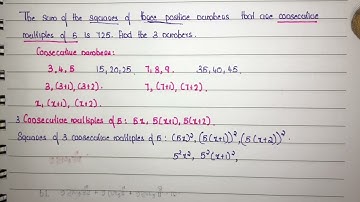 The sum of the squares of three positive numbers that are consecutive
multiples of 5 is 725. Find the 3 numbers.
Consecutive numbers:
3, 4, 5 15, 20, 25. 7, 8, 9. 35, 40, 45.
3, (3+1), (3+2). 7, (7+1), (7+2).
x, (x+1), (x+2).
3 Consecutive multiples of 5: 5x, 5(x+1), 5(x+2).
Squares of 3 consecutive multiples of 5: (5x)², (5(x+1))², (5(x+2))².
5²x², 5²(x+1)²,